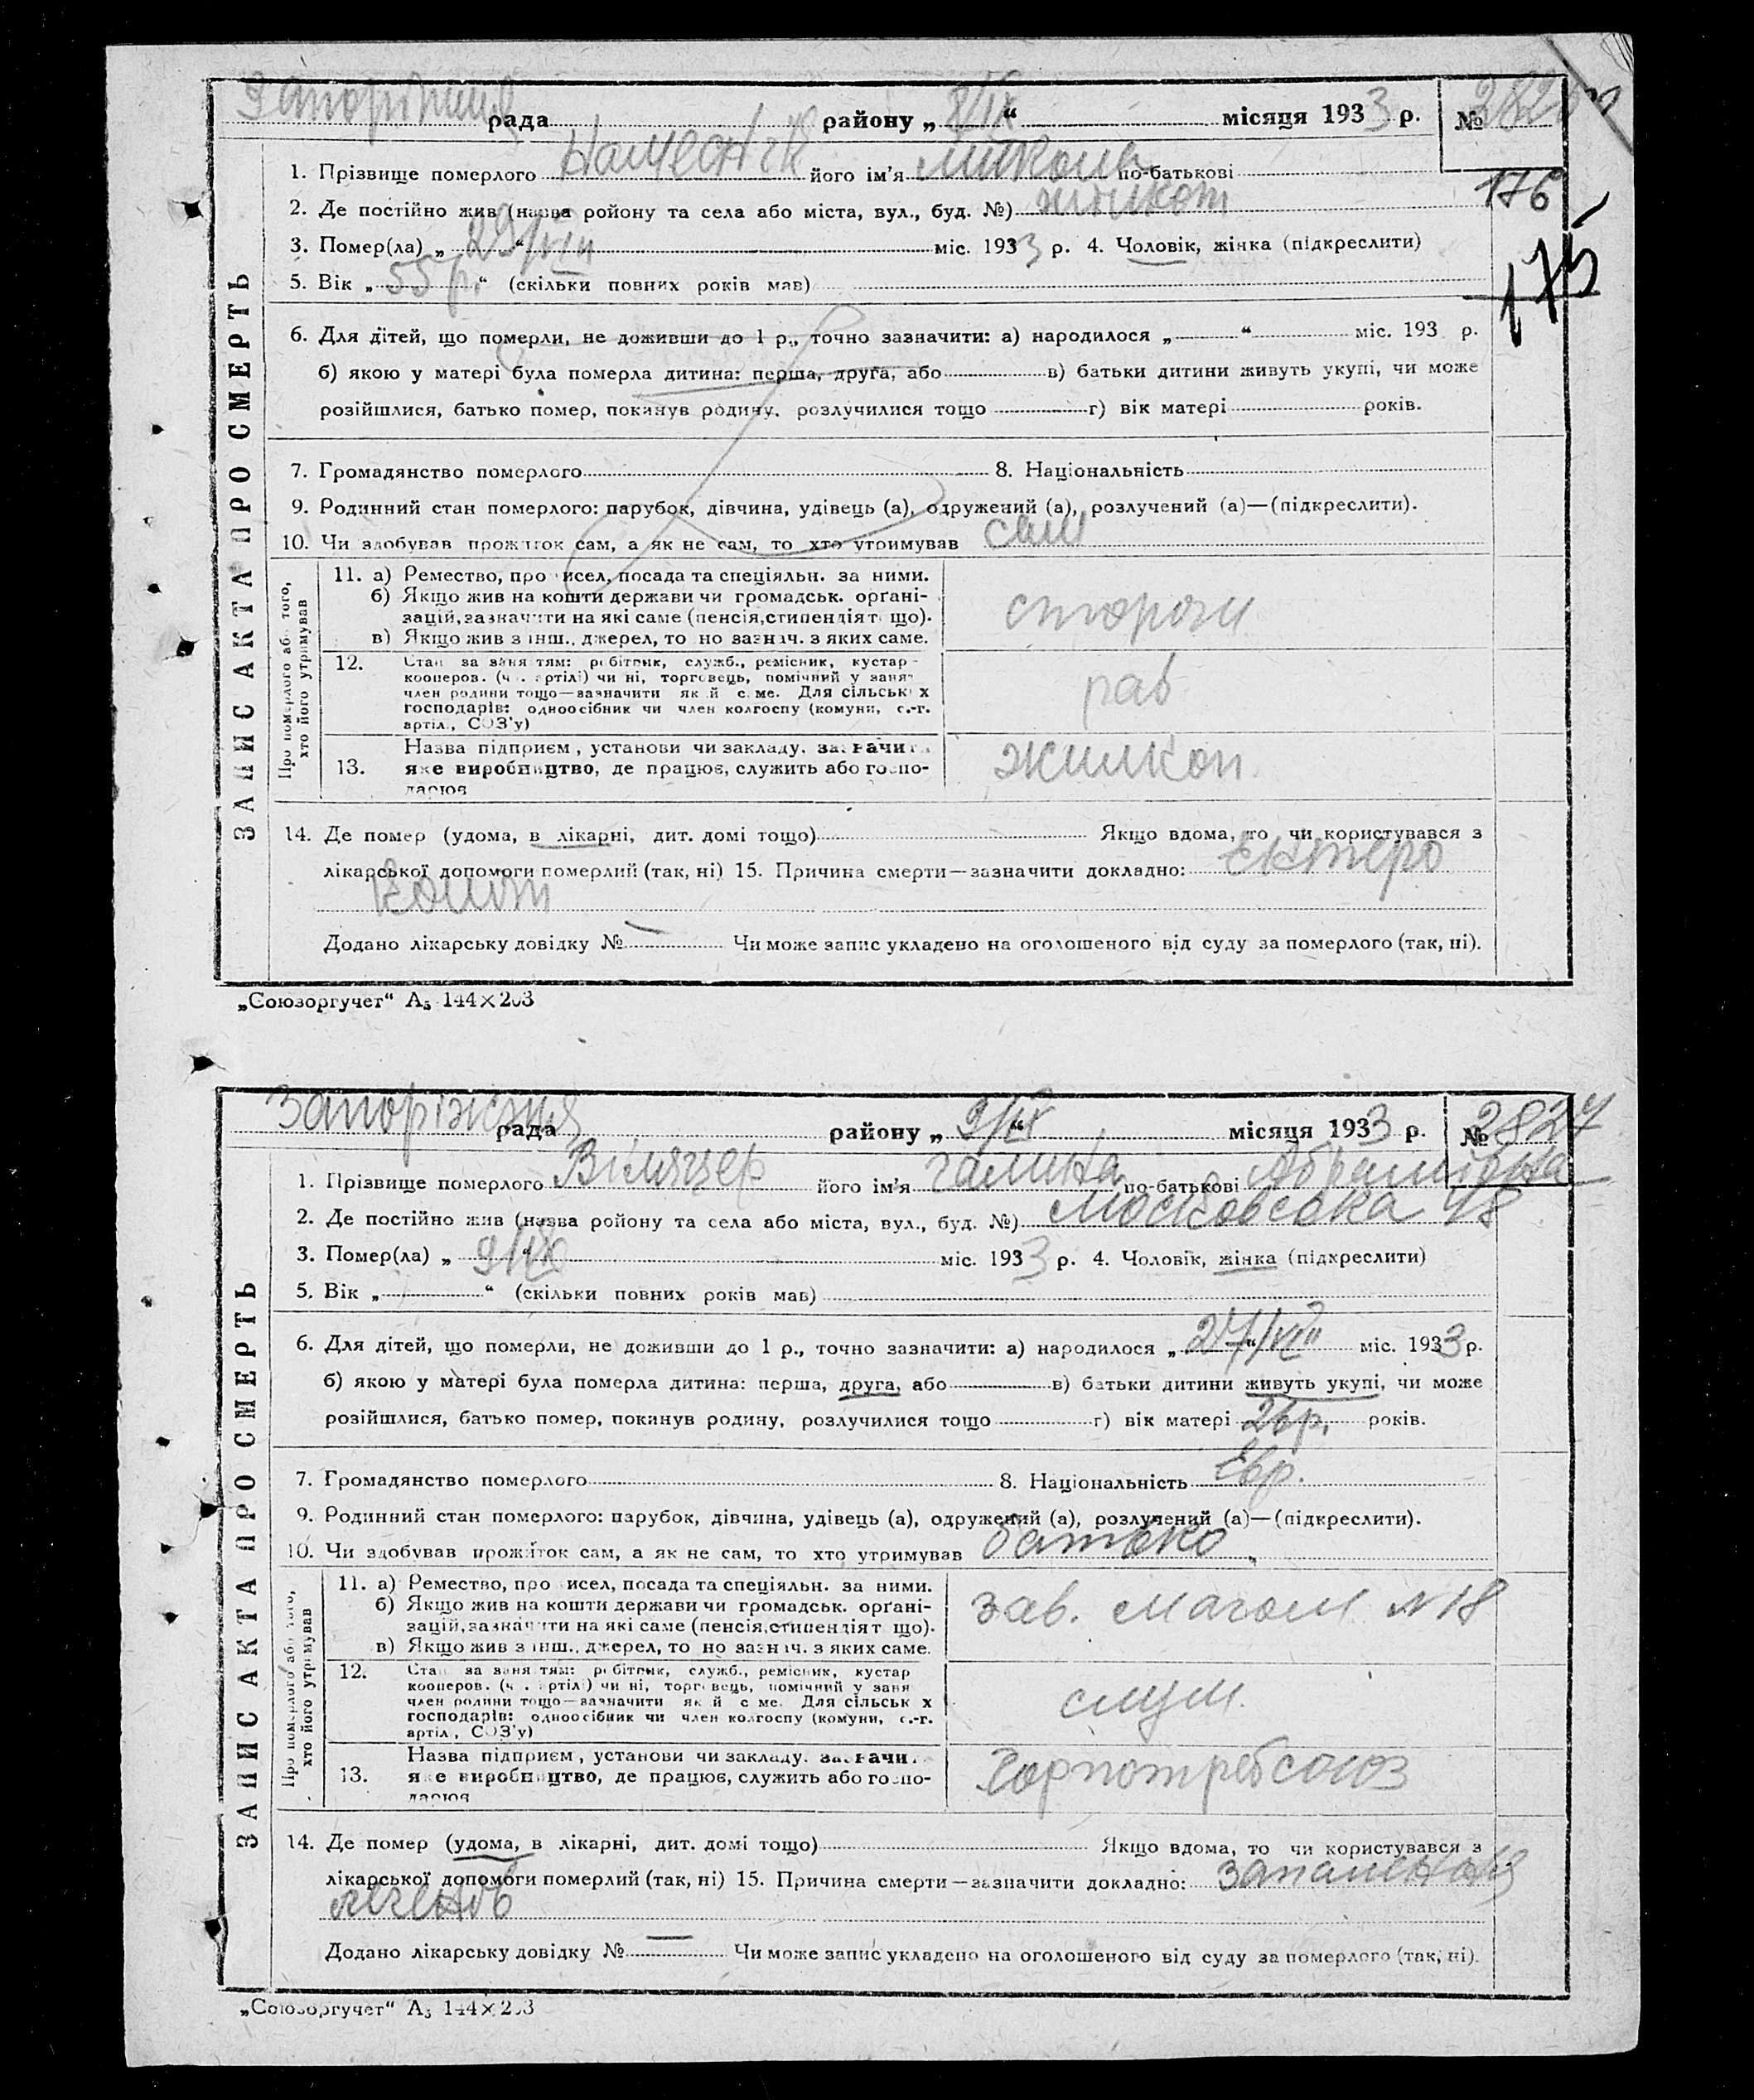 Запоріжжя рада району „ 8/IX “ місяця 1933 р. № 2826
1. Прізвище померлого його ім'я Микола по-батькові
176
2. Де постійно жив (назва ройону та села або міста, вул., буд. №)
3. Помер(ла) „ 29/VIII “ міс. 1933 р. 4. Чоловік, жінка (підкреслити)
175
5. Вік „ 55 р. “ (скільки повних років мав)
6. Для дітей, що померли, не доживши до 1 р., точно зазначити: а) народилося „ “ міс. 193 р.
б) якою у матері була померла дитина: перша, друга, або в) батьки дитини живуть укупі, чи може
розійшлися, батько помер, покинув родину, розлучилися тощо г) вік матері років.
7. Громадянство померлого 8. Національність
9. Родинний стан померлого: парубок, дівчина, удівець (а), одружений (а), розлучений (а)—(підкреслити).
10. Чи здобував прожиток сам, а як не сам, то хто утримував сам
ЗАПИС АКТА ПРО СМЕРТЬ
Про померлого або того, хто його утримував
11. а) Ремество, про исел, посада та спеціяльн. за ними.
б) Якщо жив на кошти держави чи громадськ. орґані-
зацій, зазначити на які саме (пенсія, стипендіят що).
в) Якщо жив з інш., джерел, то но зазнач. з яких саме.
сторож
12. Стан за заня тям: робітник, служб., ремісник, кустар-
кооперов. (ч . артілі) чи ні, торговець, помічний у заня
член родини тощо—зазначити як й с ме. Для сільськ х
господарів: одноосібник чи член колгоспу (комуни, с.-г.
артіл., СОЗ'у)
раб
Назва підприєм , установи чи закладу. зазначи
13. яке виробництво, де працює, служить або госпо-
дарює
жилкоп
14. Де помер (удома, в лікарні, дит. домі тощо) Якщо вдома, то чи користувався з
лікарської допомоги померлий (так, ні) 15. Причина смерти—зазначити докладно: Ентеро
коліт
Додано лікарську довідку № — Чи може запис укладено на оголошеного від суду за померлого (так, ні).
„Союзоргучет“ А₅ 144×203
Запоріжжя рада району „ 9/IX “ місяця 1933 р. № 2827
1. Прізвище померлого його ім'я Галина по-батькові Абрамівна
2. Де постійно жив (назва ройону та села або міста, вул., буд. №) Московська 48
3. Помер(ла) „ 9/IX “ міс. 1933 р. 4. Чоловік, жінка (підкреслити)
5. Вік „ “ (скільки повних років мав)
6. Для дітей, що померли, не доживши до 1 р., точно зазначити: а) народилося „ 27/VIII “ міс. 1933 р.
б) якою у матері була померла дитина: перша, друга, або в) батьки дитини живуть укупі, чи може
розійшлися, батько помер, покинув родину, розлучилися тощо г) вік матері 26 р. років.
7. Громадянство померлого 8. Національність Євр.
9. Родинний стан померлого: парубок, дівчина, удівець (а), одружений (а), розлучений (а)—(підкреслити).
10. Чи здобував прожиток сам, а як не сам, то хто утримував батько
ЗАПИС АКТА ПРО СМЕРТЬ
Про померлого або того, хто його утримував
11. а) Ремество, про исел, посада та спеціяльн. за ними.
б) Якщо жив на кошти держави чи громадськ. орґані-
зацій, зазначити на які саме (пенсія, стипендіят що).
в) Якщо жив з інш., джерел, то но зазнач. з яких саме.
зав. магаз. № 18
12. Ста за заня тям: робітник, служб., ремісник, кустар
кооперов. (ч . артілі) чи ні, торговець, помічний у заня
член родини тощо—зазначити як й с ме. Для сільськ х
господарів: одноосібник чи член колгоспу (комуни, с.-г.
артіл., СОЗ'у)
служ.
Назва підприєм , установи чи закладу. зазначи
13. яке виробництво, де працює, служить або госпо-
дарює
Горпотребсоюз
14. Де помер (удома, в лікарні, дит. домі тощо) Якщо вдома, то чи користувався з
лікарської допомоги померлий (так, ні) 15. Причина смерти—зазначити докладно: запалення
легенів
Додано лікарську довідку № — Чи може запис укладено на оголошеного від суду за померлого (так, ні).
„Союзоргучет“ А₅ 144×203